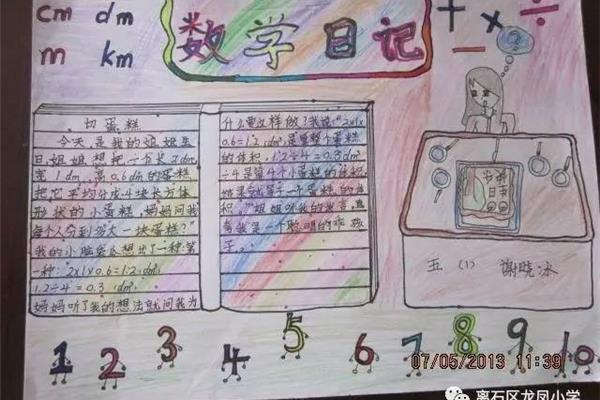 cm dm
m km
数学日记
+ - × ÷
?
切蛋糕
今天,是我的姐姐生
日,姐姐想把一个长2dm,
宽1dm,高0.6dm的蛋糕
把它平均分成4块长方体
形状的小蛋糕,妈妈问我
每个人分到多大一块蛋糕?"
我的小脑袋立想出了一种
种:"2×1×0.6=1.2(dm³)
1.2÷4=0.3(dm³)
妈妈听了我的想法就问我为
什么要这样做?我说:"2×1×
0.6=1.2(dm³)是算整个蛋糕
的体积,1.2÷4=0.3dm³
÷4是算4个小蛋糕的体积,
就是
一个蛋糕的体
积。"姐姐听我的
我是一个聪明的乖孩
子。
数学
日记
五(1) 谢晓冰
1 2 3 4 5 6 7 8 9 10
07/05/2013 11:39
离石区龙凤小学